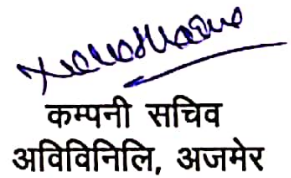 कम्पनी सचिव
अविविनिलि, अजमेर